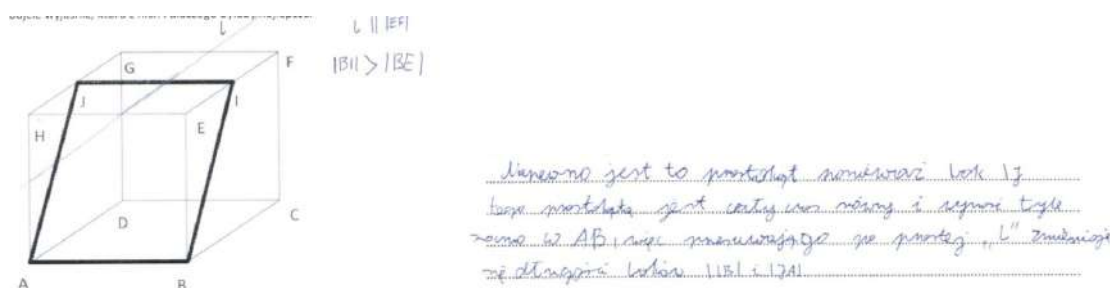 l
l || |EF|
|BI| > |BE|
G
F
J
I
H
E
D
C
A
B
jest to prostokąt ponieważ bok IJ
tego prostokąta jest cały czas równy i wynosi tyle
co AB, więc po prostej „l” zmieniają
się długości boków |IB| i |JA|